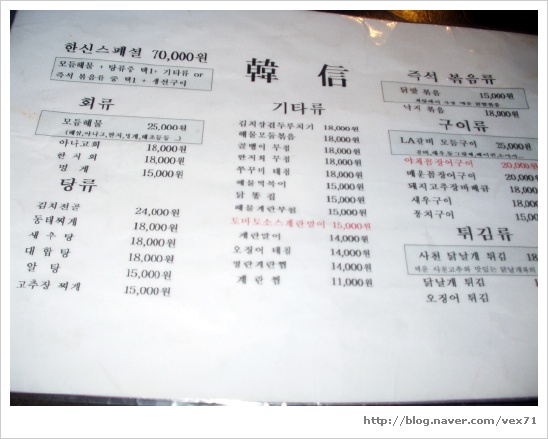 한신스페셜 70,000원
모듬해물 + 탕류중 택1+ 기타류 or
즉석 볶음류 중 택1 + 생선구이
韓 信
회류
모듬해물 25,000원
아나고회 18,000원
한치회 18,000원
멍게 15,000원
탕류
김치전골 24,000원
동태찌개 18,000원
새우탕 18,000원
대합탕 18,000원
알탕 15,000원
고추장 찌개 15,000원
기타류
김치삼겹두루치기 18,000원
해물모듬볶음 18,000원
골뱅이 무침 18,000원
한치회 무침 18,000원
쭈꾸미 데침 18,000원
해물떡볶이 15,000원
닭똥집 15,000원
해물계란부원 15,000원
토마토소스계란말이 15,000원
계란말이 14,000원
오징어 데침 14,000원
명란계란찜 14,000원
계란찜 11,000원
즉석 볶음류
닭발 볶음 15,000원
낙지 볶음 18,000원
구이류
LA갈비 모듬구이 25,000원
야채꼼장어구이 20,000원
매운꼼장어구이 20,000
돼지고추장바베큐 18,000
새우구이 18,000
꽁치구이 15,000
튀김류
사천 닭날개 튀김 18
닭날개 튀김
오징어 튀김
http://blog.naver.com/vex71